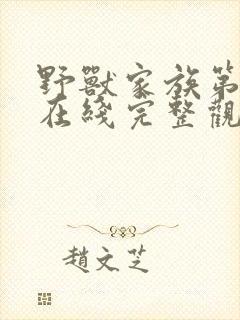 野獸家族第
在綫完整觀
趙文芝